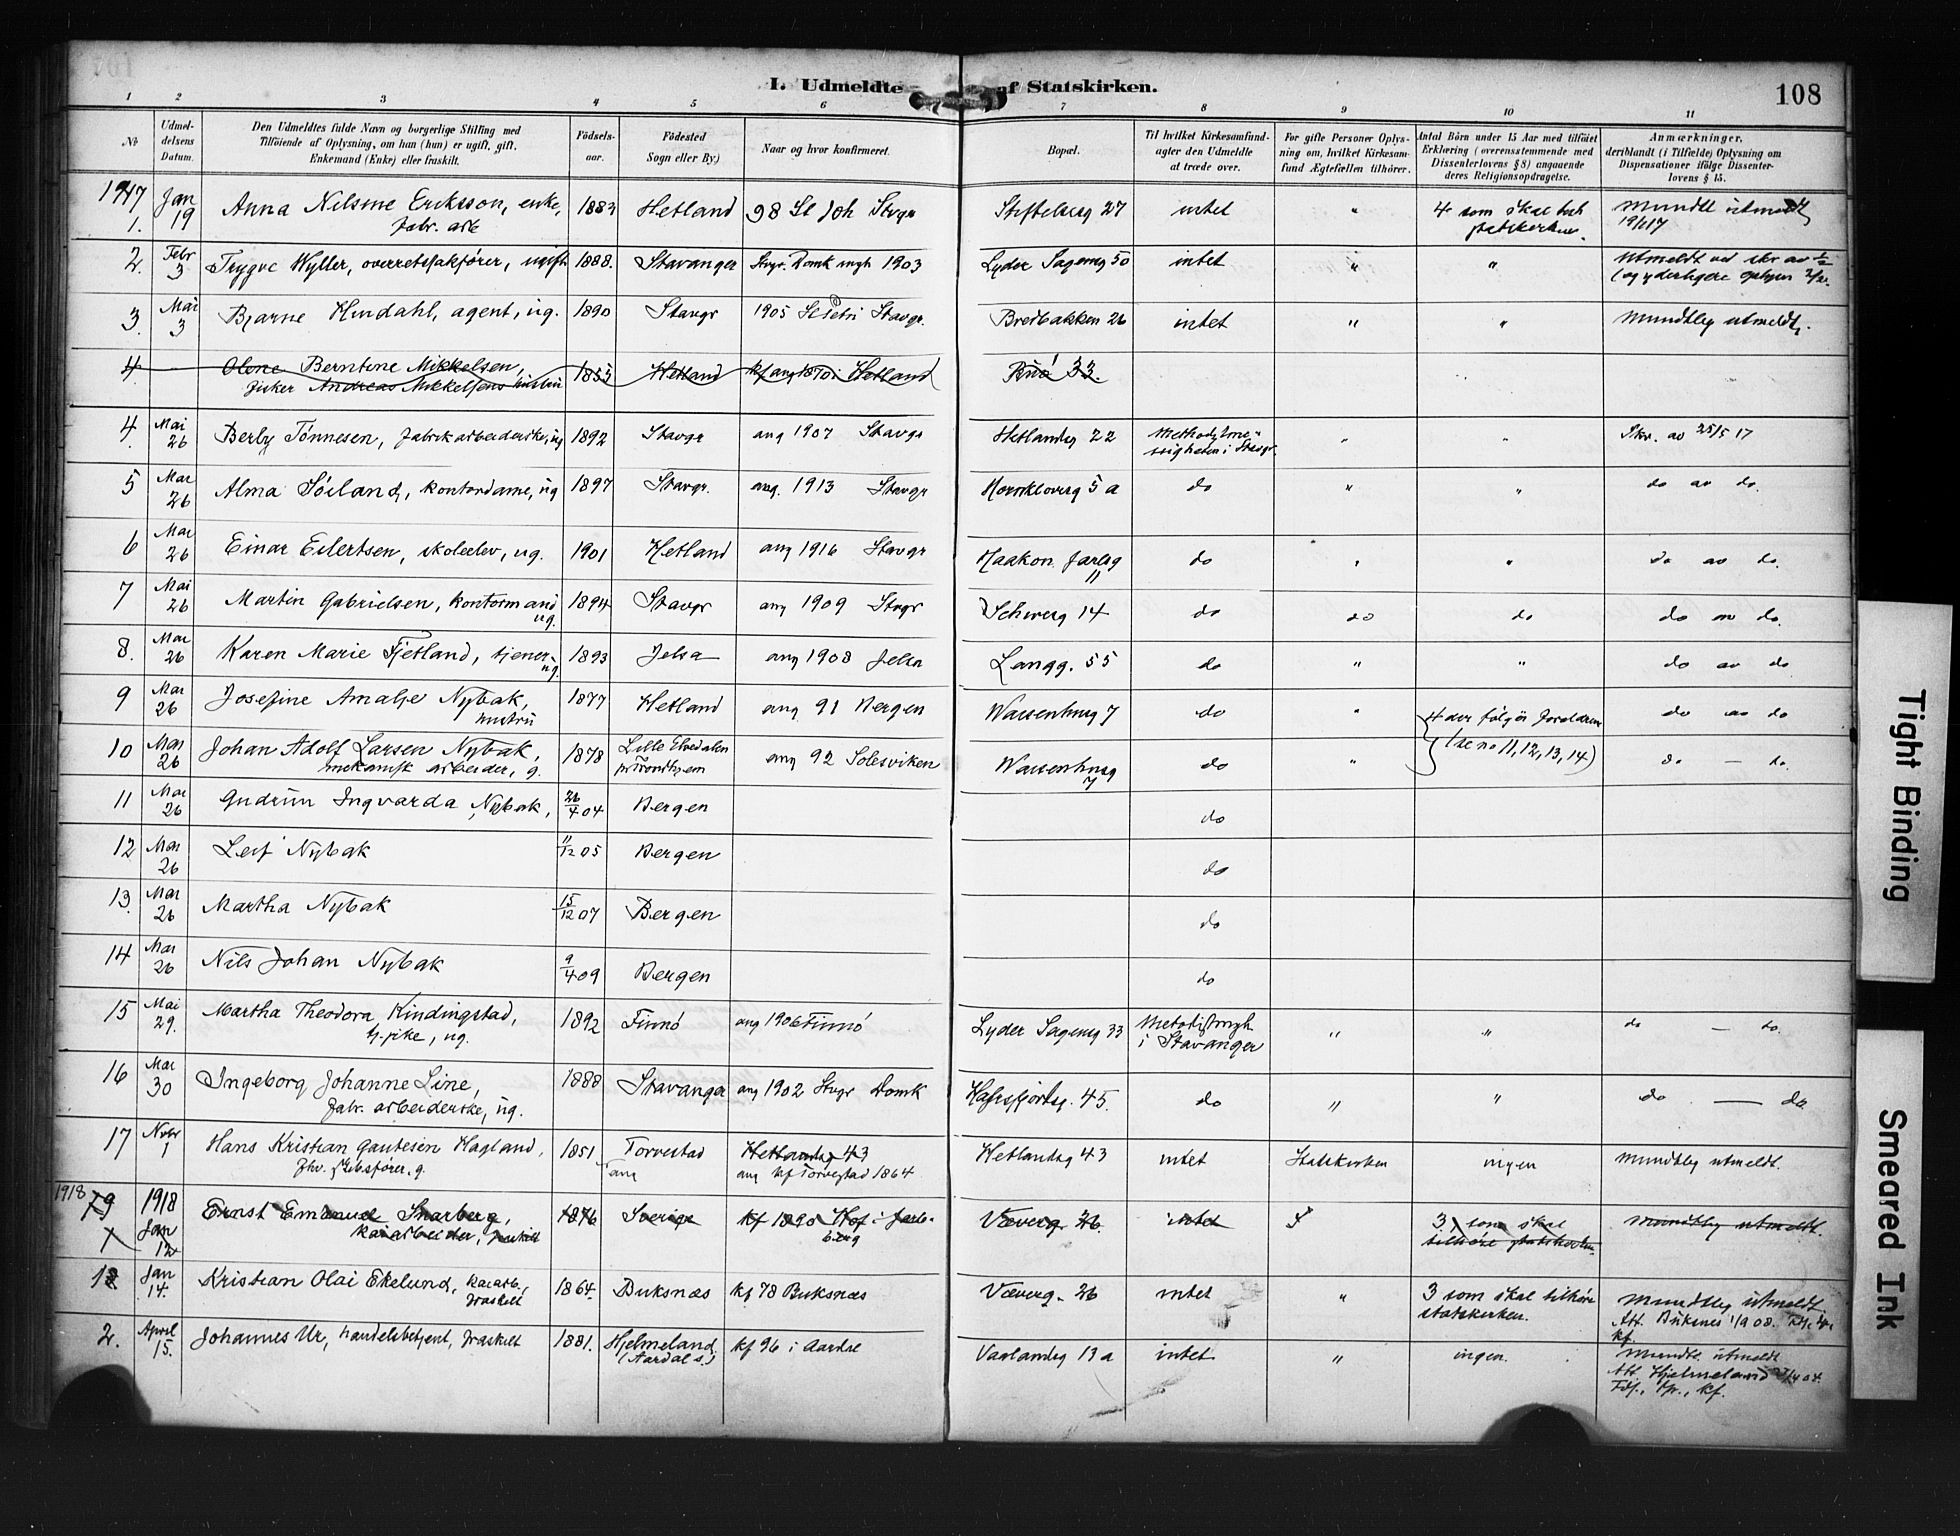 I. Udmeldte af Statskirken.
108
1 2 3 4 5 6 7 8 9 10 11
No
Udmel-
delsens
Datum.
Den Udmeldtes fulde Navn og borgerlige Stilling med
Tilföiende af Oplysning, om han (hun) er ugift, gift,
Enkemand (Enke) eller fraskilt.
Födsels-
aar.
Födested
Sogn eller By)
Naar og hvor konfirmeret.
Bopæl.
Til hvilket Kirkesamfund-
agter den Udmeldte
at træde over.
For gifte Personer Oplys-
ning om, hvilket Kirkesam-
fund Ægtefællen tilhörer.
Antal Börn under 15 Aar med tilföiet
Erklæring (overensstemmende med
Dissenterlovens § 8) angaaende
deres Religionsopdragelse.
Anmærkninger,
deriblandt (i Tilfælde) Oplysning om
Dispensationer ifölge Dissenter-
lovens § 15.
1917 Jan Anna Eriksson, enke, 1883 Hetland 98 St Joh Stvgr 27 intet " 4 som skal
1. 19 fabr. arb statskirken. 19/1 17
2. Febr Trygve Wyller, overretssakfører, ugift 1888. Stavanger Stvgr. Domk mgh 1903 Lyder Sagensg 50 intet " " Utmeldt ved skr av
3
3. Mai Bjarne Hindahl, agent, ug. 1890 Stavgr 1905 St Petri Stavgr. Bredbakken 26 intet " " Mundtlig utmeldt.
3
4. Olene Berntine Mikkelsen, 1853 Hetland Hetland Buø 33.
fisker Andreas Mikkelsens hustru
4. Mai Berly Tønnesen, fabrikarbeiderske, ug 1892 Stavgr aug 1907 Stavgr Hetlandsg 22 i Stavgr. " " Skr. av 25/5 17
26
5 Mai Alma Søiland, kontordame, ug 1897 Stavgr. aug. 1913 Stavgr 5 a do " " do av do.
26
6 Mai Einar Eilertsen, skoleelev, ug. 1901 Hetland aug 1916 Stavgr Haakon Jarlsg do " " do av do.
26 11
7 Mai Martin Gabrielsen, kontormand 1894 Stavgr aug 1909 Stvgr 14 do do do do av do.
26 ug.
8. Mai Karen Marie Fjetland, tjener 1893 Jelsa aug 1908 Jelsa Langg. 55 do " " do av do
26 ug.
9 Mai Josefine Amalje Nybak, 1877 Hetland aug 91 Bergen 7 do " 4 der følger forældrene do av do
26 hustru (se no 11, 12, 13, 14)
10 Mai Johan Adolf Larsen Nybak, 1878 Lille Elvedalen aug 92 Solesviken do " do — do.
26 mekanisk arbeider, g. pr Trondhjem 7
11 Mai Gudrun Ingvarda Nybak, 26/4 04 Bergen do
26
12 Mai Leif Nybak 11/12 05 Bergen do
26
13. Mai Martha Nybak 15/12 07 Bergen do
26
14 Mai Nils Johan Nybak 9/4 09 Bergen do
26
15 Mai Martha Theodora Kindingstad, 1892 Finnö aug 1906 Finnö Lyder Sagensg 33 " " do — do.
29. tj.pike, ug. i Stavanger
16 Mai Ingeborg Johanne Line, 1888 Stavanger aug 1902 Stvgr Domk Hafrsfjordsg. 45. do " " do — do.
30 fabr. arbeiderske, ug.
17 Novbr Hans Kristian Gautesen Hagland, 1851 Torvestad Hetlandsg 43 Hetlandsg 43 intet Statskirken ingen Mundtlig utmeldt.
1 fhv. skibsfører, g. aug kf Torvestad 1864
1918 1918 Ernst Emanuel Snarberg, 1876 Sverige kf 1890 Hof i Jarls- Væverg. 26. intet 3 som skal Mundtlig utmeldt.
1 Jan 12 kaiarbeider, fraskilt berg tilhøre statskirken.
1 Jan Kristian Olai Ekelund, kaiarb., 1864. Buksnæs kf 78 Buksnæs Væverg. 26 intet " 3 som skal tilhøre Mundtlig utmeldt.
14. fraskilt statskirken. Att. Buksnes 08.
kf.
2. April Johannes Ur, handelsbetjent, fraskilt 1881. Hjelmeland kf 96 i Aardal Vaalandsg 13 a intet " ingen. Mundtl. utmeldt
15. (Aardal s.) Att. Hjelmeland 04.
Fdf., dp., kf.
Tight Binding
Smeared Ink